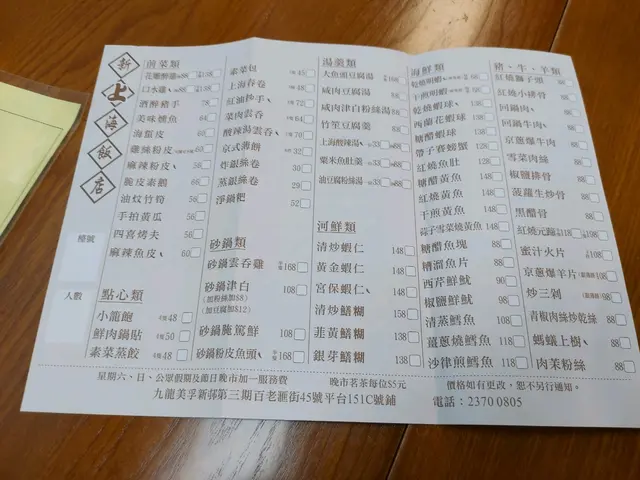 新上海飯店
檯號
人數
前菜類
花雕醉雞 88 138
口水雞 88 138
酒醉豬手 78
美味燻魚 64
海蜇皮 60
雞絲粉皮
麻辣粉皮 58
脆皮素鵝 68
油炆竹筍 56
手拍黃瓜 56
四喜烤夫 60
麻辣魚皮 60
點心類
小籠飽 48
鮮肉鍋貼 50
素菜蒸餃 48
素菜包 45
上海春卷 48
紅油抄手 72
菜肉雲吞 64
酸辣湯雲吞 70
京式薄餅 32
炸銀絲卷 30
蒸銀絲卷 29
淨鍋粑 52
砂鍋類
砂鍋雲吞雞 168
砂鍋津白 108
(加粉絲加$8)
(加豆腐加$12)
砂鍋醃篤鮮 108
砂鍋粉皮魚頭 168
湯羹類
大魚頭豆腐湯 168
咸肉豆腐湯 88
咸肉津白粉絲湯 88
竹笙豆腐羹 88
上海酸辣湯 33 88
粟米魚肚羹 33 88
油豆腐粉絲湯 33 88
河鮮類
清炒蝦仁 148
黃金蝦仁 148
宮保蝦仁 148
清炒鱔糊 158
韮黃鱔糊 138
銀芽鱔糊 138
海鮮類
乾燒明蝦
干煎明蝦
乾燒蝦球 138
西蘭花蝦球 138
糖醋蝦球 138
帶子賽螃蟹 138
紅燒魚肚 128
糖醋黃魚 138
紅燒黃魚 138
干煎黃魚 138
蒜子雪菜燒黃魚 148
糖醋魚塊 88
糟溜魚片 88
西芹鮮魷 90
椒鹽鮮魷 88
清蒸鱈魚 108
薑蔥燒鱈魚 118
沙津煎鱈魚 118
豬、牛、羊類
紅燒獅子頭 88
紅燒小排骨 88
回鍋肉 88
回鍋牛肉 88
京蔥爆牛肉 88
雪菜肉絲 88
椒鹽排骨 88
菠蘿生炒骨 88
黑醋骨 88
紅燒元蹄 118 208
蜜汁火片 108
京蔥爆羊片 98
炒三剝 98
青椒肉絲炒乾絲 88
螞蟻上樹 88
肉茉粉絲 88
星期六、日、公眾假期及節日晚市加一服務費
晚市茗茶每位$5元
價格如有更改，恕不另行通知。
九龍美孚新邨第三期百老滙街45號平台151C號鋪
電話：2370 0805